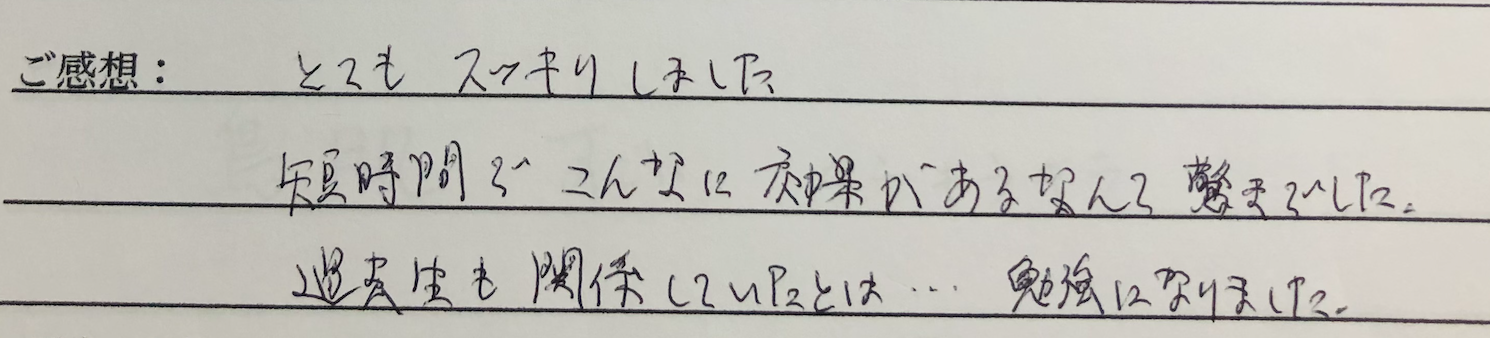 ご感想： とても スッキリしました
短時間で こんなに 効果が あるなんて 驚きでした。
過去生も 関係していたとは… 勉強になりました。